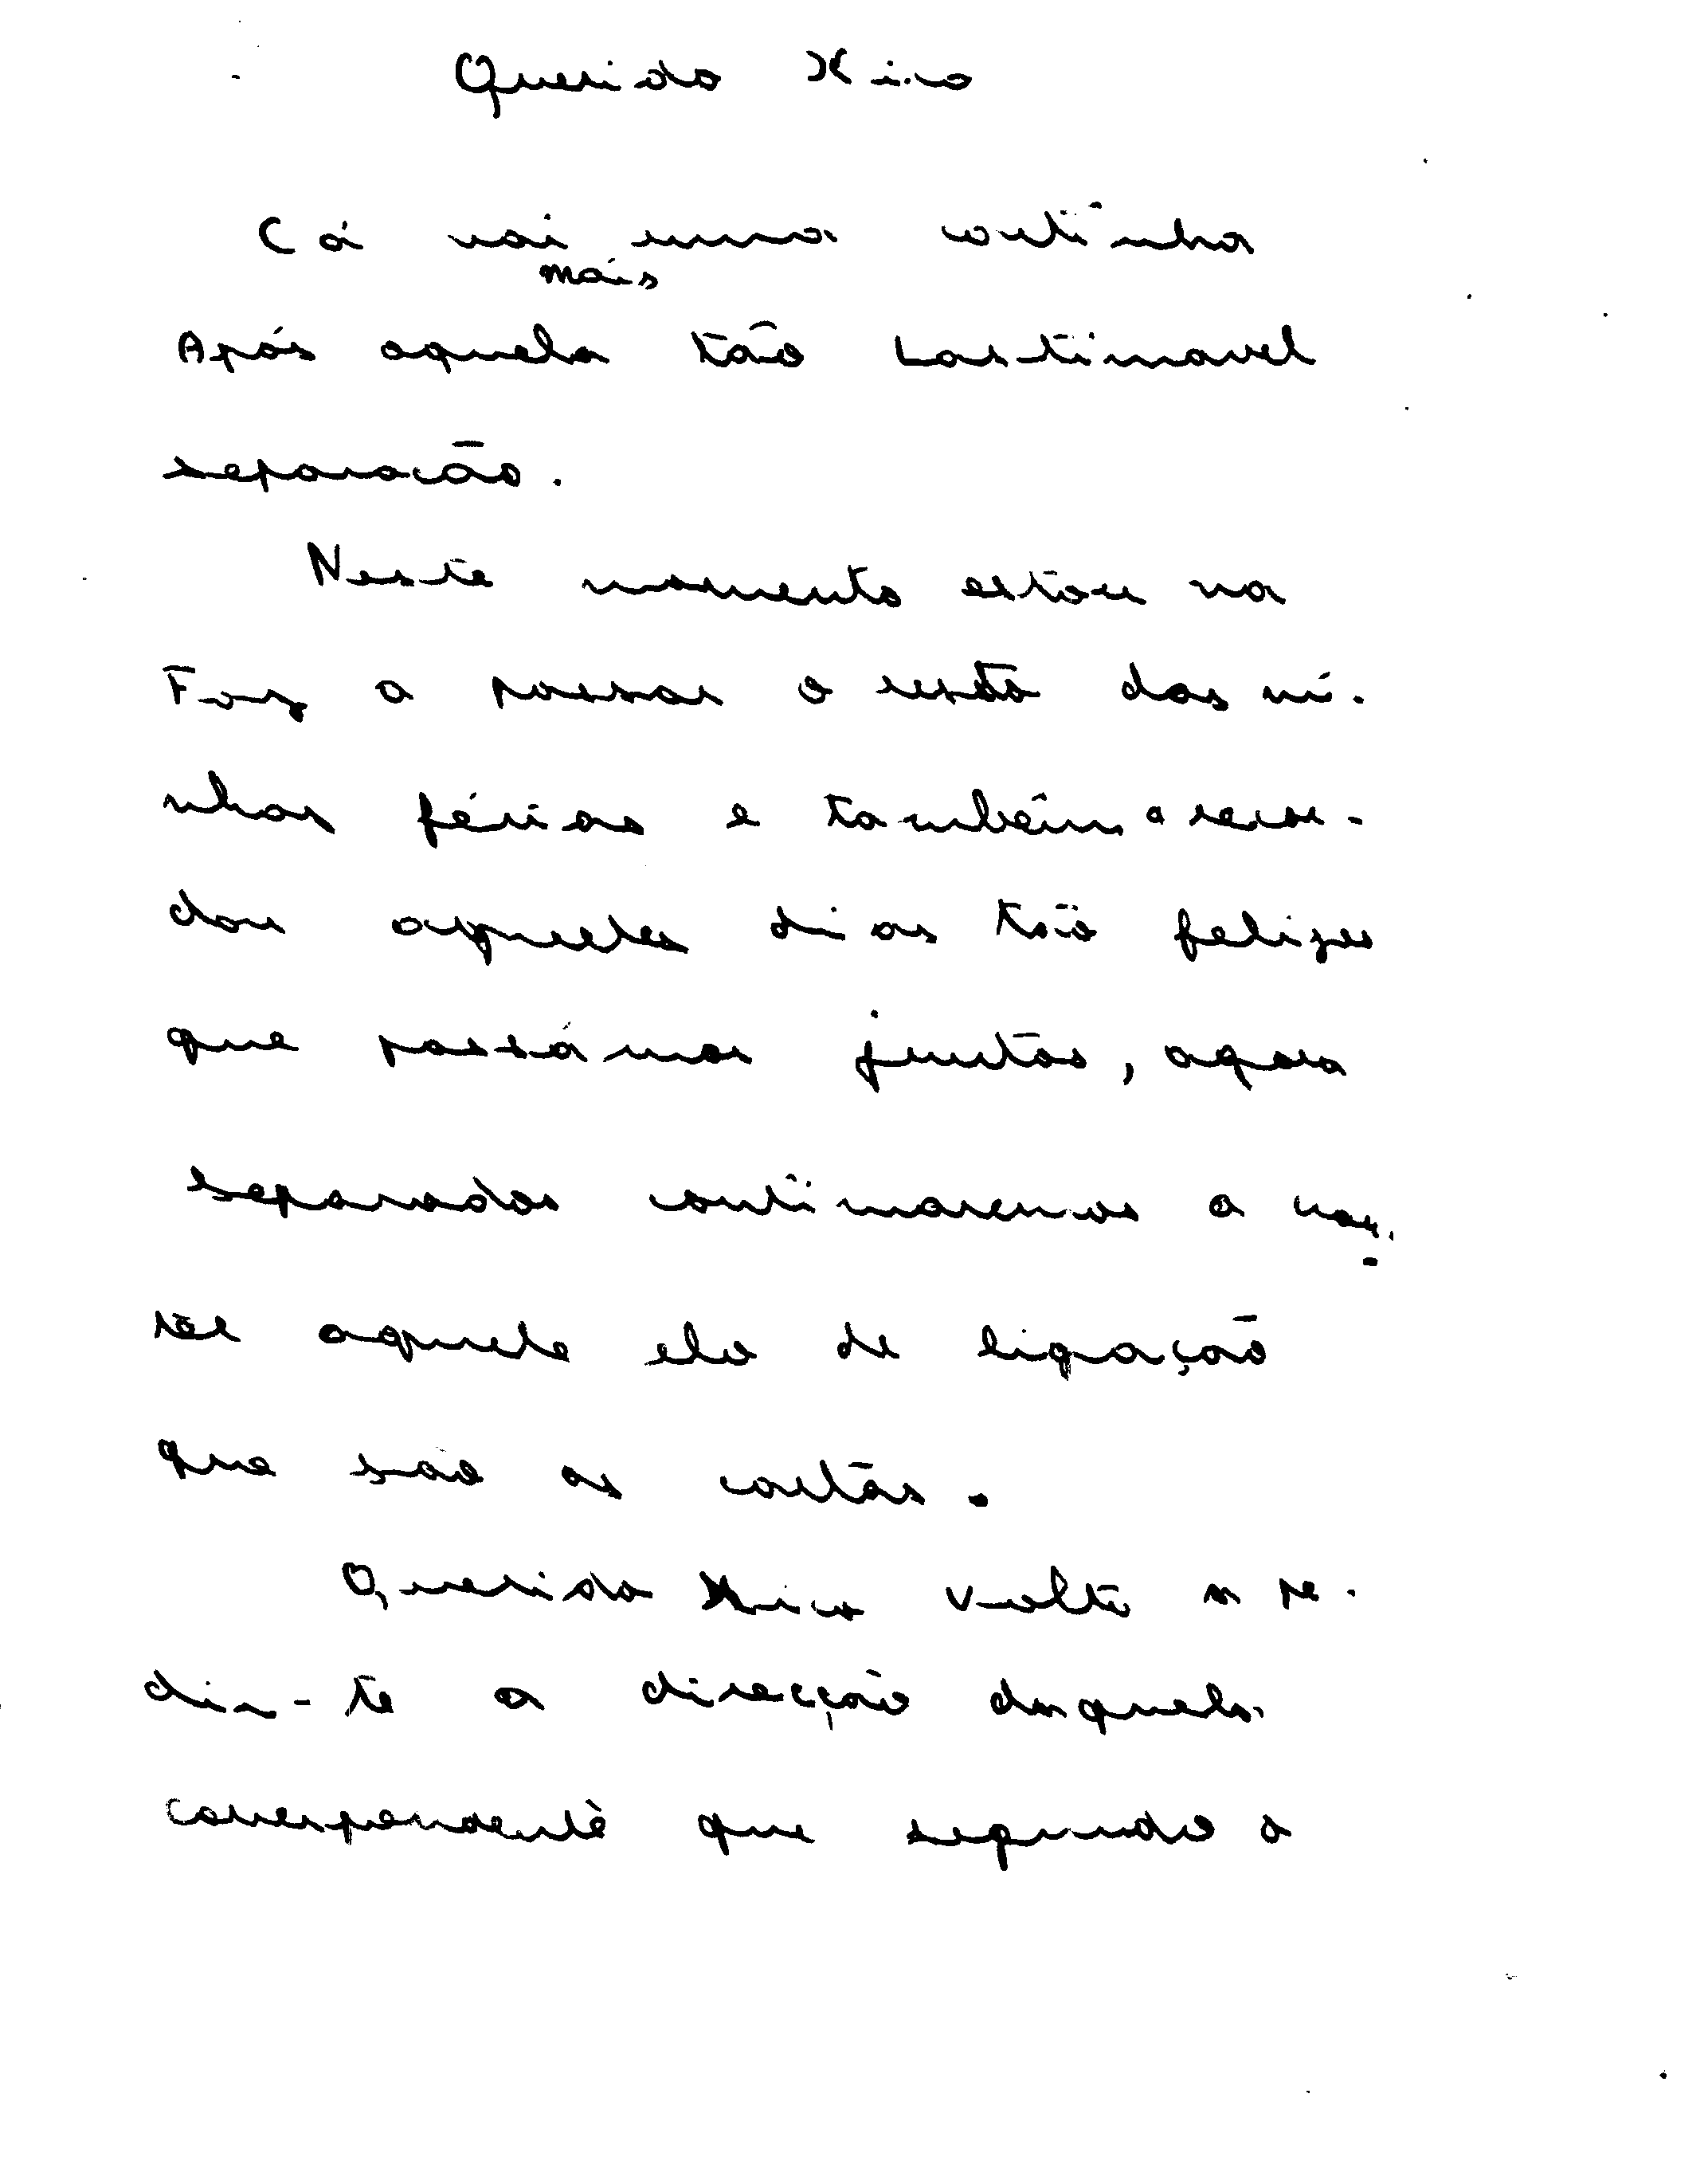 Querido Xico
Cá vai uma cartinha
mais
Após aquela tão Lastimavel
separacão.
Neste momento estou na
Foz a passar o resto das mi-
nhas férias e também a recor-
dar aqueles dias tão felizes
que passámos juntos, agora
separados continuaremos a
ter aquele elo de ligação
que são as cartas.
Querido Xico volto a pe-
dir-te a direcção daquela
correspondente que segundo a